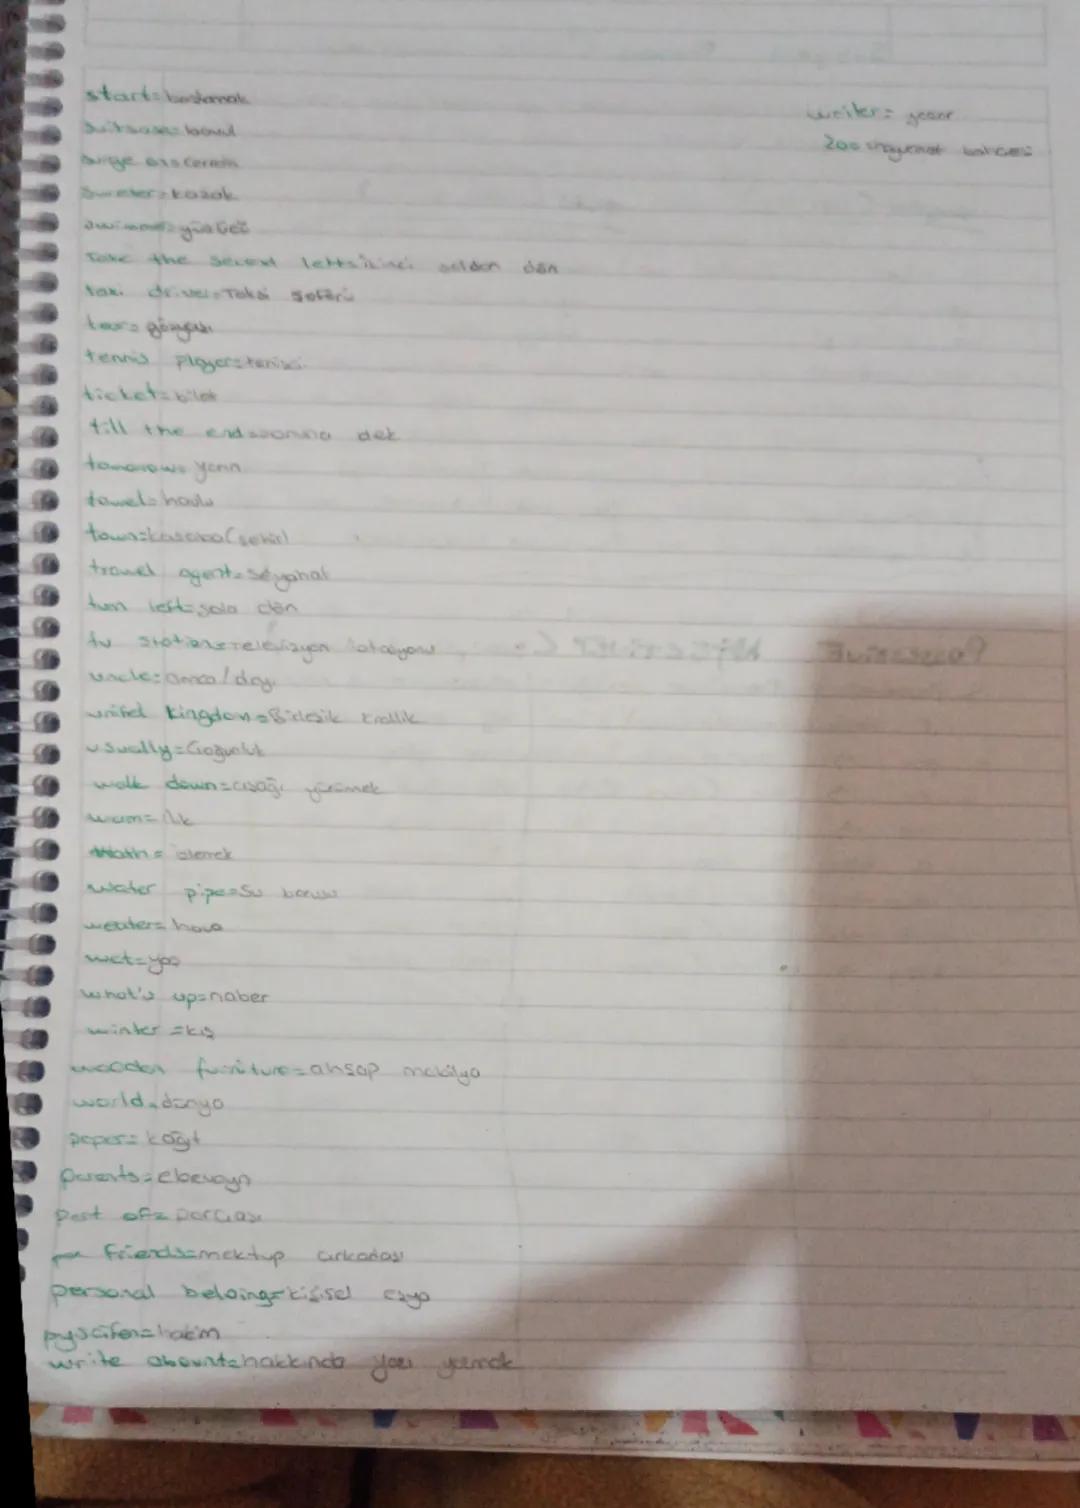 start=başlamak
suitsase=bavul
surge
sweter=kazak
yüzücü
Take the second left=ikinci soldan dön
taxi driver=Taksi şoförü
tear=gözyaşı
tennis player=tenisci
ticket=bilet
till the end=sonuna dek
tomorow=yarın
towel=havlu
town=kasaba(şehir)
trawel agent=seyahat
turn left=sola dön
tv station=televizyon istasyonu
uncle=amca/dayı
united kingdom=Birleşik krallık
usually=Çoğunluk
walk down=aşağı yürümek
warm=ılık
izlemek
water pipe=su borusu
weater=hava
wet=yaş
what's up=naber
winter=kış
wooden furniture=ahşap mobilya
world=dünya
paper=kağıt
parents=ebeveyn
part of=parçası
friends=mektup arkadaşı
personal beloing=kişisel eşya
hakim
write abount=hakkında yazı yazmak
writer=yazar
zoo=hayvanat bahçesi